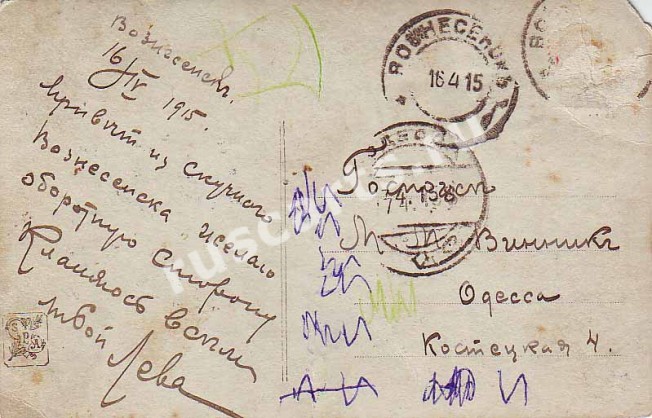 Вознесенскъ.
16/IV 1915.
Привѣтъ из скучного
Вознесенска
оборотную сторону
Кланяюсь всѣмъ
твой Лева
ВОЗНЕСЕНСКЪ
16 4 15
ОДЕССА
Госпожѣ
М. М. Винникъ
Одесса
Костецкая 4.
ruscards.ru